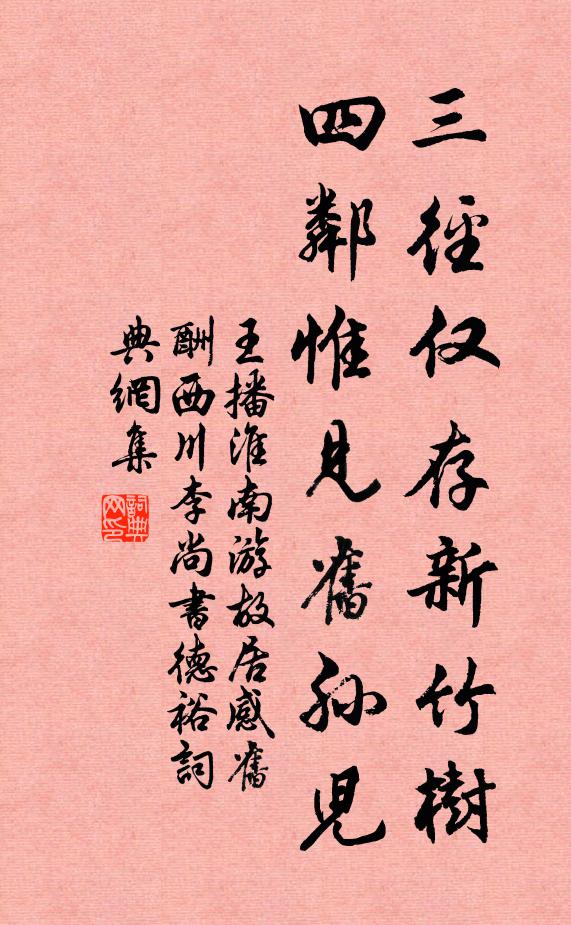 三徑仅存新竹樹
四鄰惟見舊孫兒
王播淮南游故居感舊
酬西川李尚書德裕詞
典網集
詞典网印